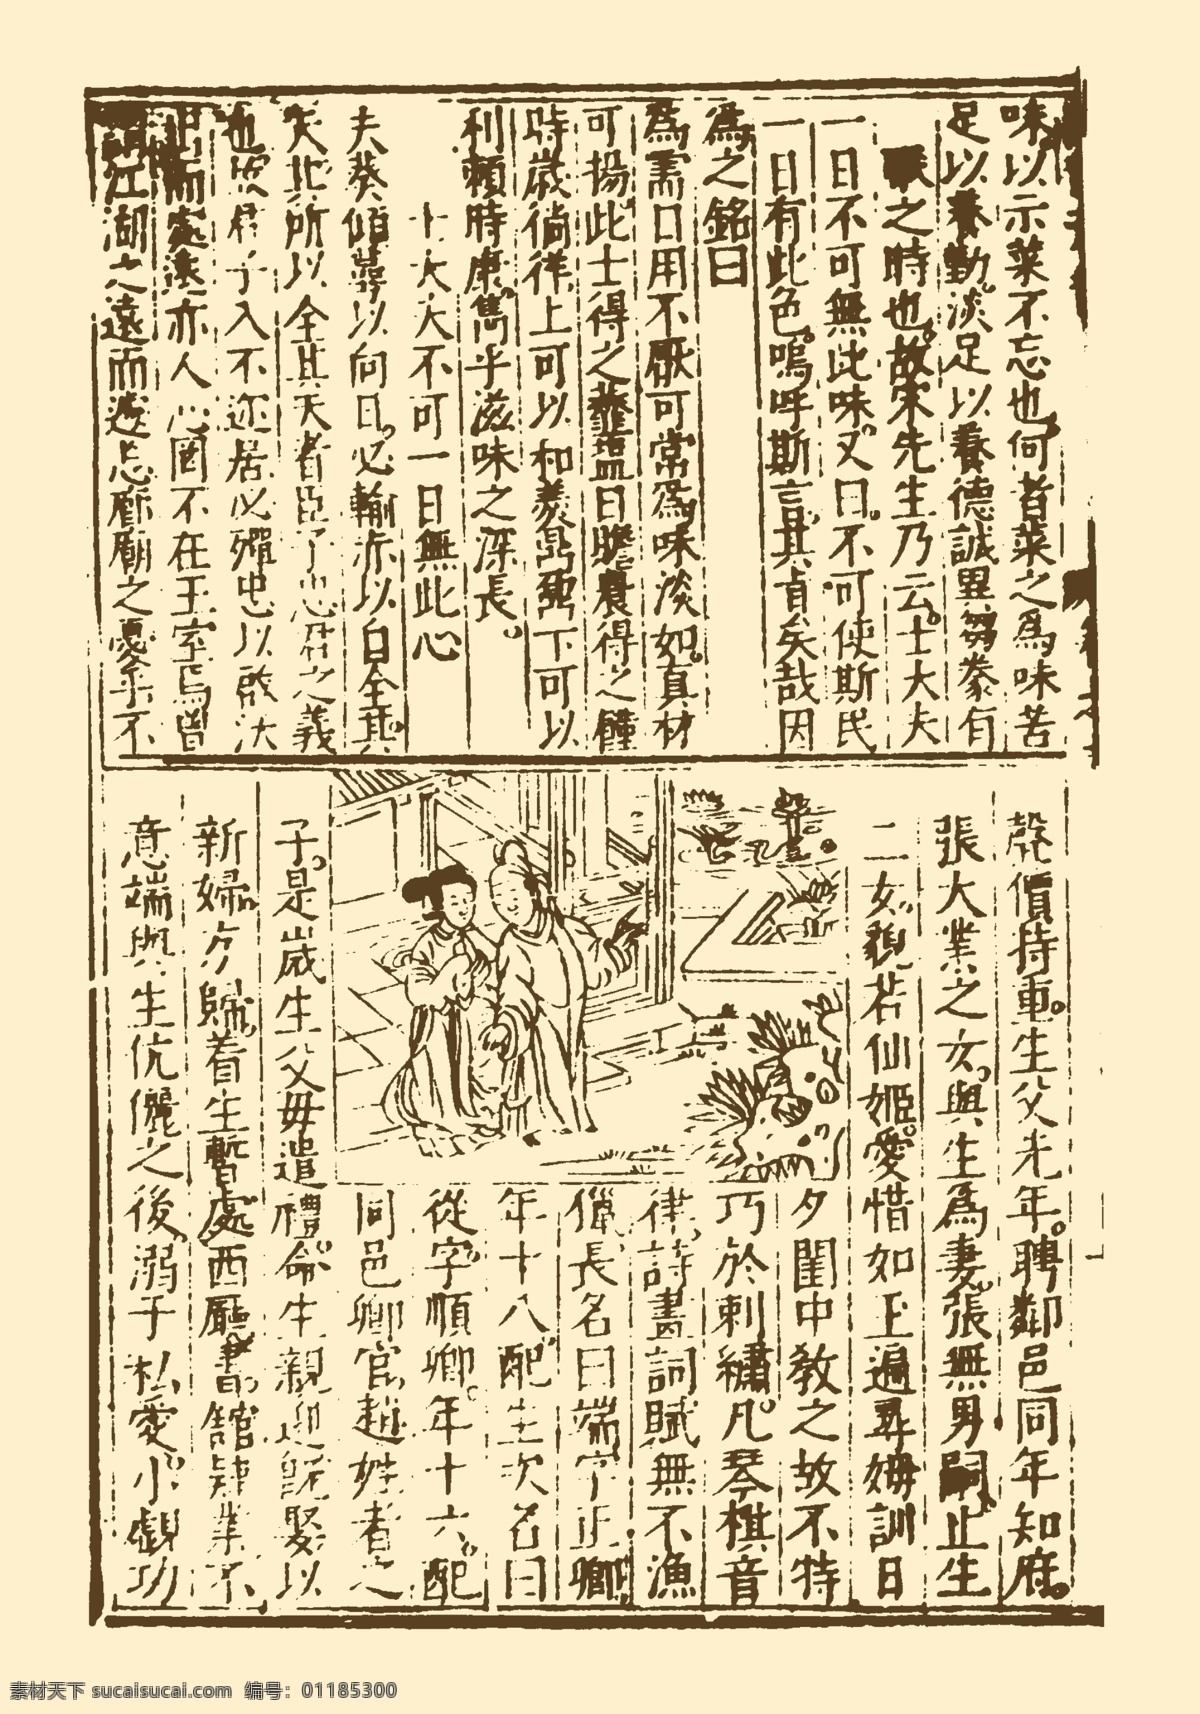 味以示菜不忘也何者菜之為味苦
足以養勤淡足以養德誠異芻豢有
之時也故宋先生乃云士大夫
一日不可無此味又曰不可使斯民
一日有此色嗚呼斯言其貞矣哉因
為之銘曰
為需日用不厭可常為味淡如真材
可揚此士得之虀鹽日瞻農得之饉
時歲徜徉上可以和羹鼎鼐下可以
利賴時康雋乎滋味之深長
士大夫不可一日無此心
夫葵傾葉以向日必輸赤以自全其
天此所以全其天者臣子忠君之義
也故君子入不迩居必殫忠以啟沃
出而處遠亦人心罔不在王室焉曾
謂江湖之遠而遽忘廊廟之憂乎不
聲價持重生父先年聘鄰邑同年知府
張大業之女與生為妻張無男嗣止生
二女貌若仙姬愛惜如玉遍尋姆訓日
夕閨中教之故不特
巧於刺繡凡琴棋音
律詩畫詞賦無不漁
獵長名曰端字正卿
年十八配生次名曰
從字順卿年十六配
同邑卿官趙姓者之
子是歲生父母遣禮命生親迎既娶以
新婦方歸着生暫處西廳書館肄業不
意端與生伉儷之後溺于私愛小覷功
素材天下 sucaisucai.com 编号：01185300